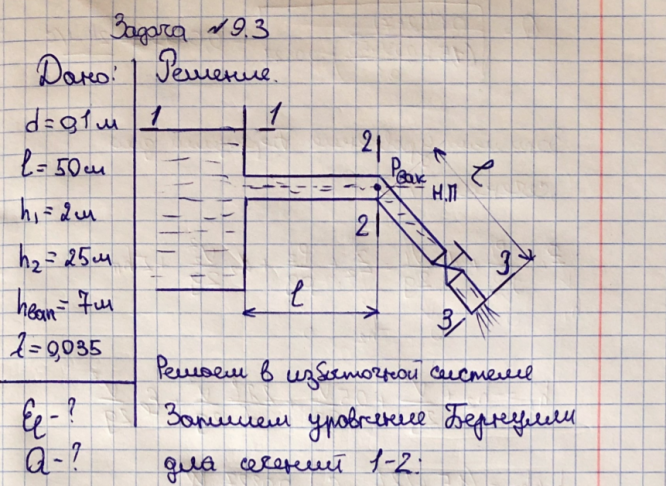 Задача №9.3
Дано:
d = 0,1 м
l = 50 м
h₁ = 2 м
h₂ = 25 м
hвак = 7 м
λ = 0,035
ξ - ?
Q - ?
Решение.
1 1
2
Pвак
Н.П
l
2
3
l
3
Решаем в избыточной системе
Запишем уравнение Бернулли
для сечений 1-2: